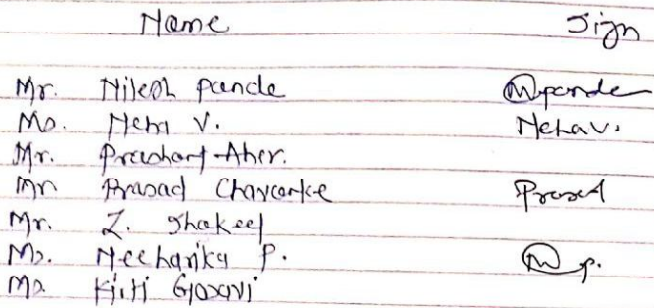 Name Sign
Mr. Nilesh Pande Npande
Ms. Neha V. Neha V.
Mr. Prashant Aher.
Mr Prasad Chavanke Prasad
Mr. Z. Shakeel
Ms. Neeharika P. N p.
Ms. Kirti Gosavi